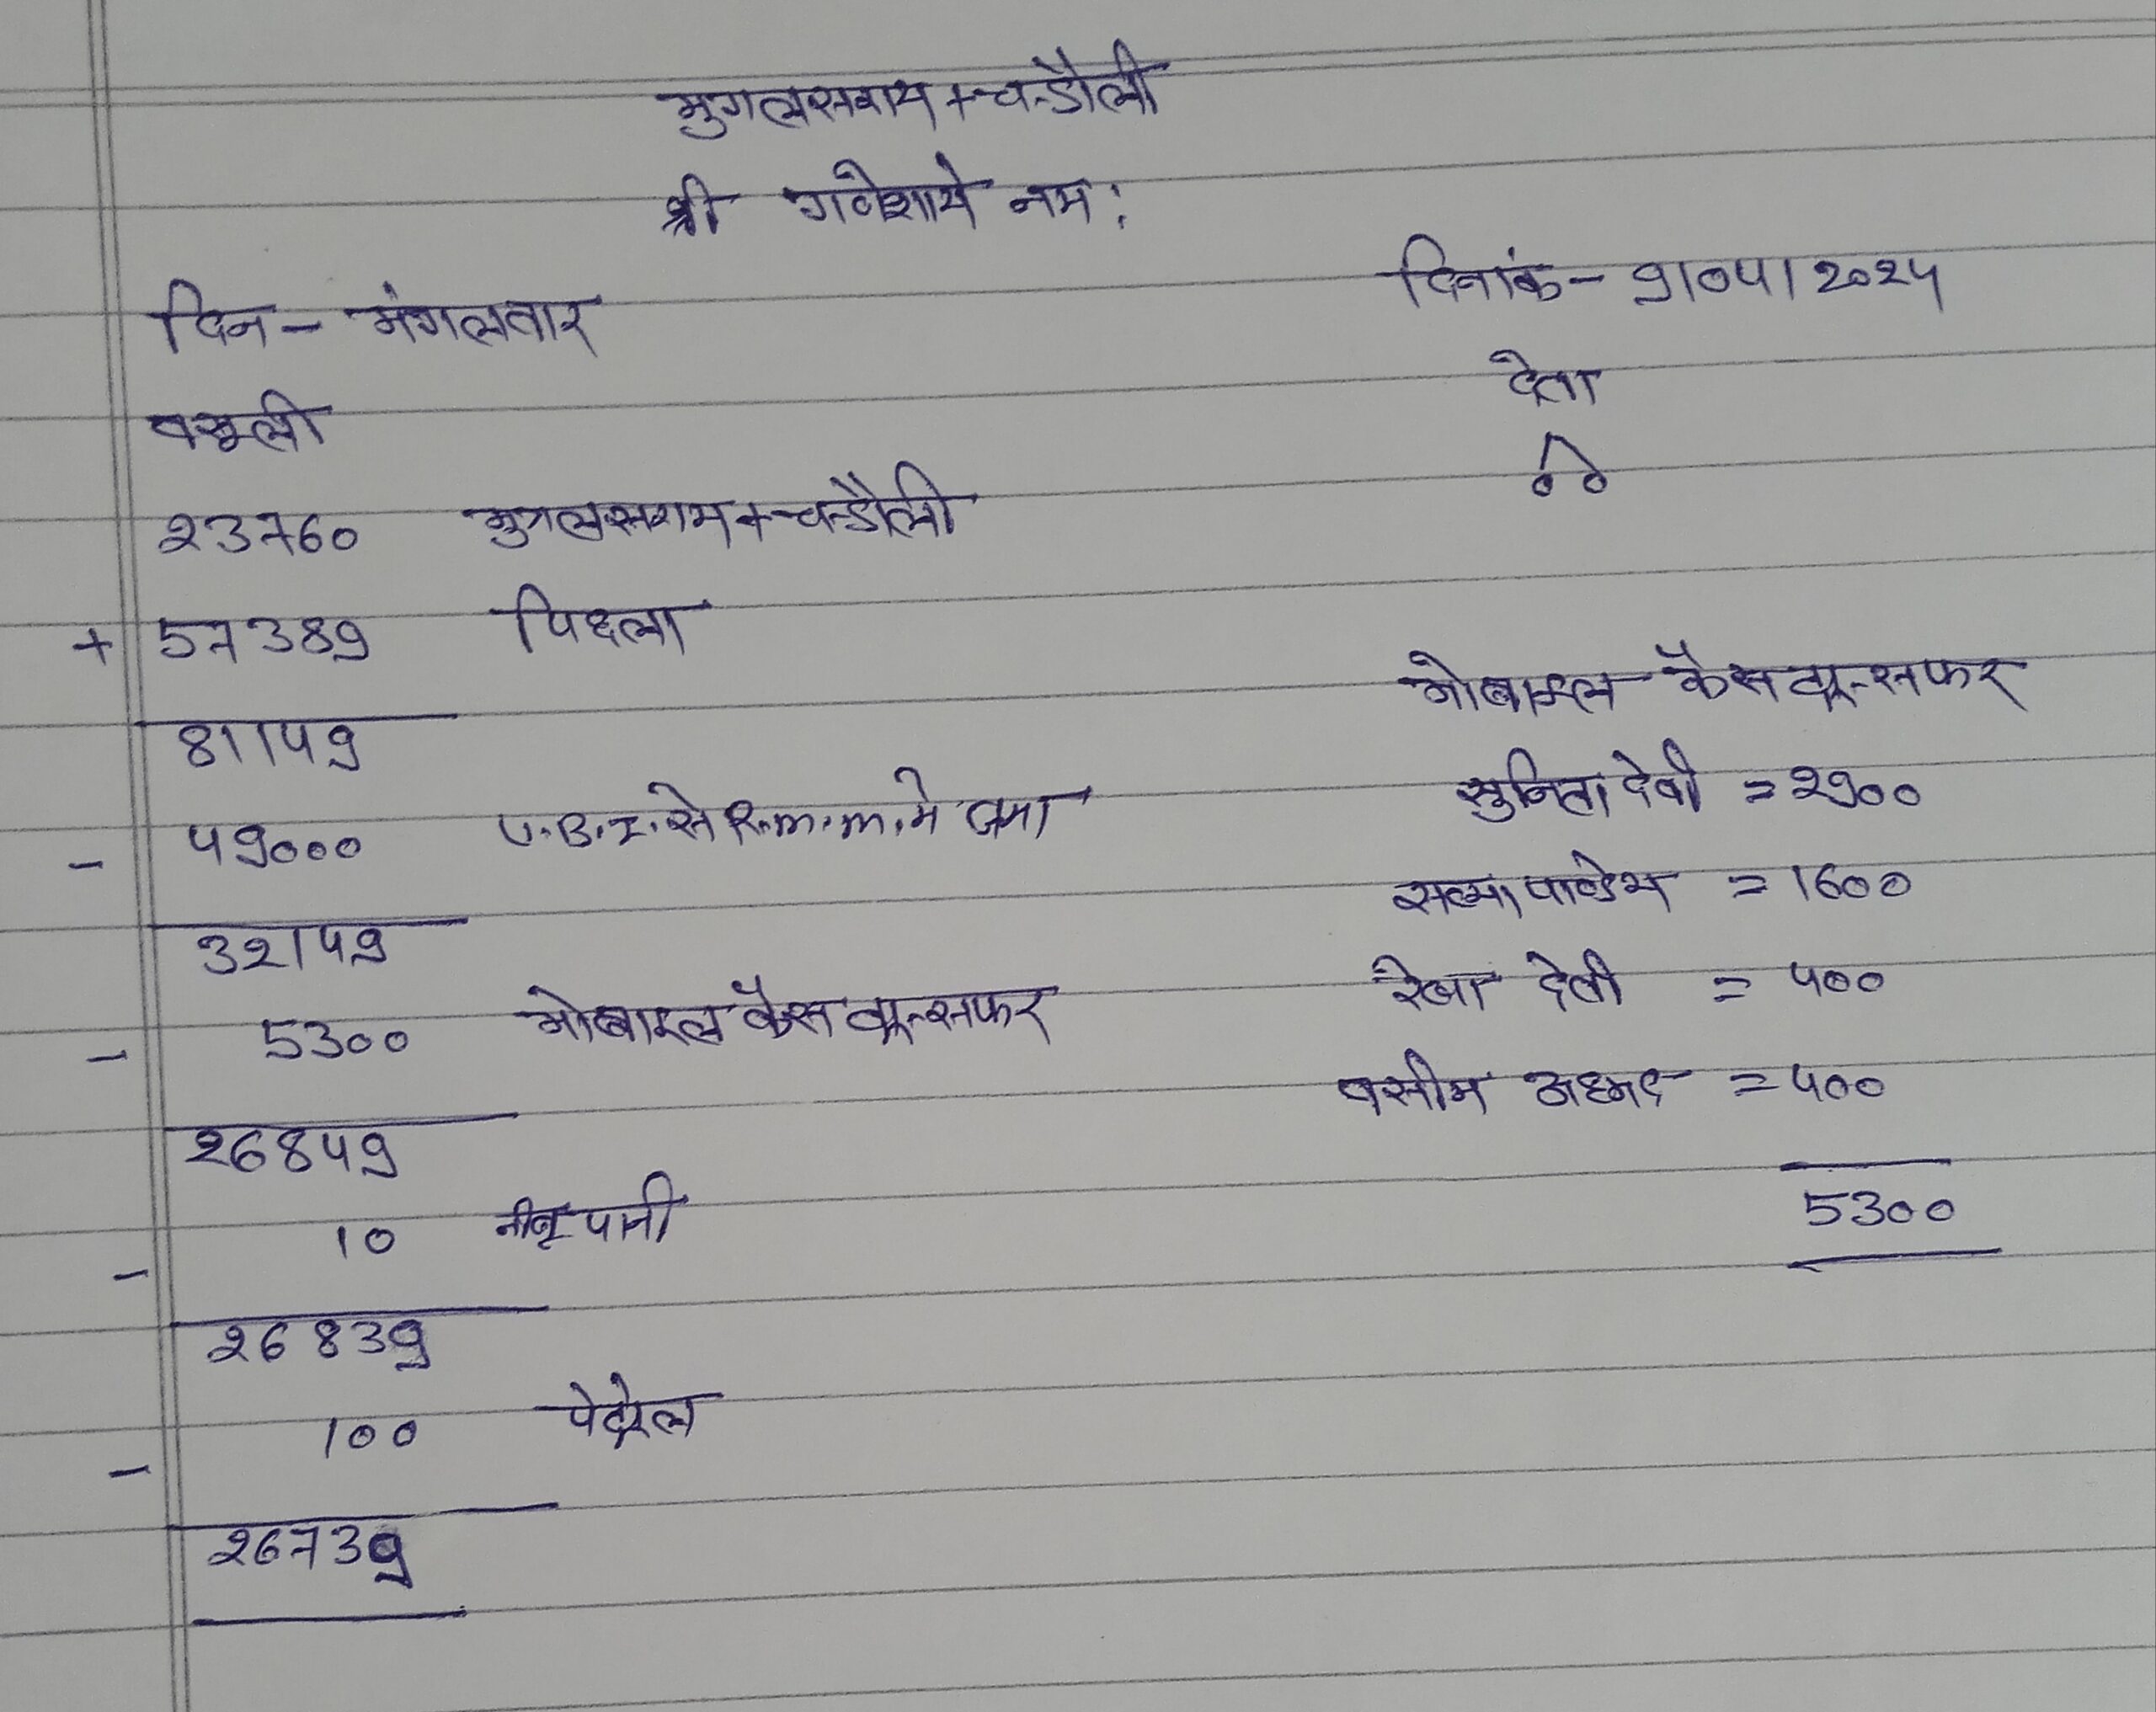 मुगलसराय + चन्डौली
श्री गणेशाये नम:
दिनांक - 9/04/2024
दिन - मंगलवार
देना
वसूली
00
23760 मुगलसराय + चन्डौली
+ 57389 पिछला
मोबाइल कैस ट्रान्सफर
81149
सुनिता देवी = 2900
- 49000 U.B.I. से R.m.m. मे जमा
सत्या पाण्डेय = 1600
32149
रेखा देवी = 400
- 5300 मोबाइल कैस ट्रान्सफर
वसीम अहमद = 400
26849
5300
- 10 नीबू पानी
26839
- 100 पेट्रोल
26739